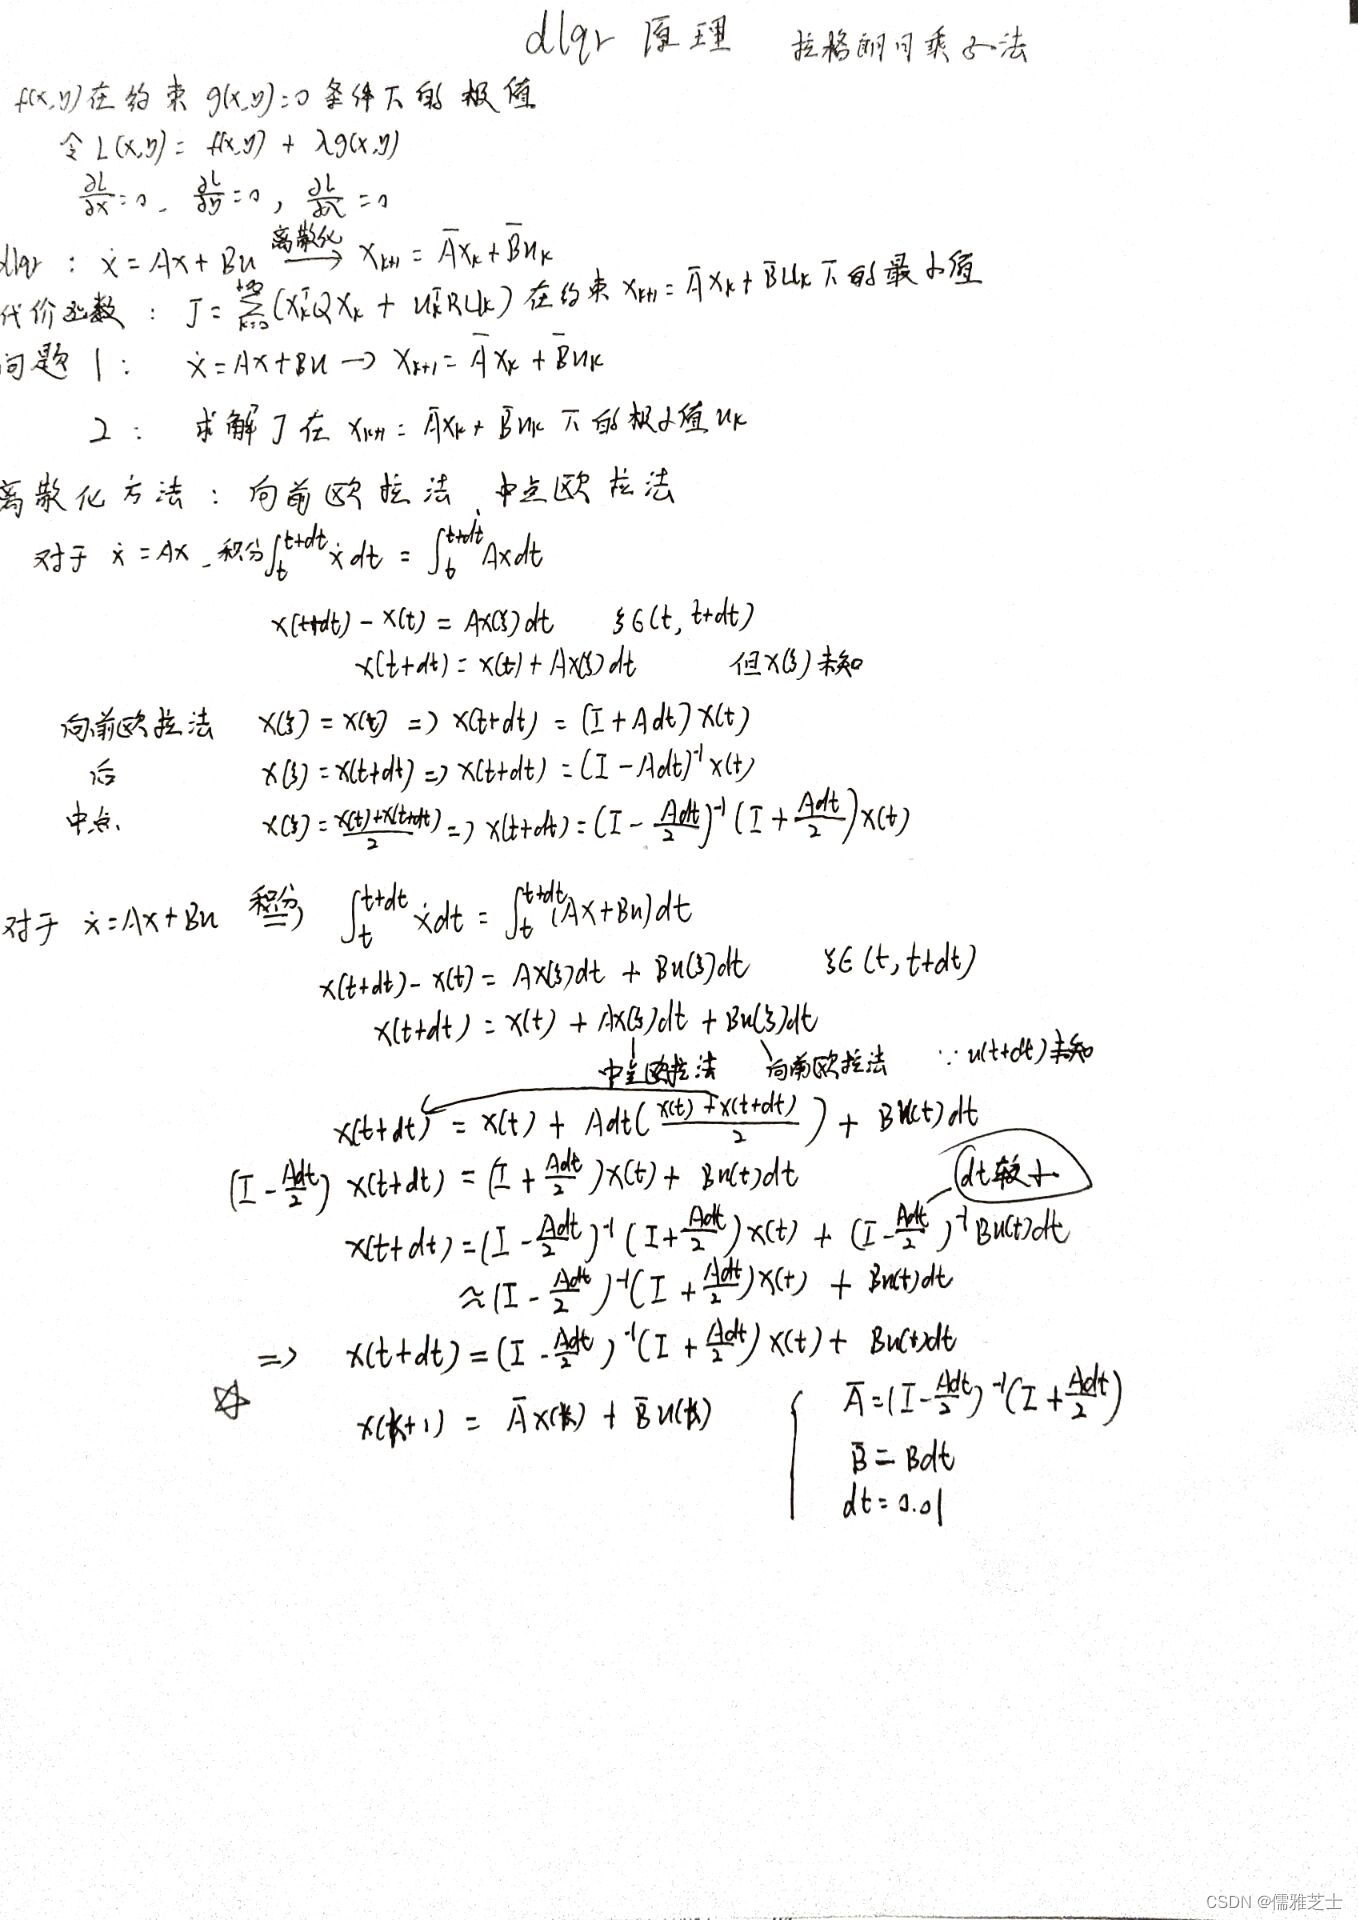 dlqr 原理 拉格朗日乘子法
f(x,y)在约束 g(x,y)=0 条件下的极值
令 L(x,y) = f(x,y) + λg(x,y)
∂L/∂x=0、∂L/∂y=0, ∂L/∂λ=0
dlqr: ẋ=Ax+Bu —离散化→ x_{k+1} = Āx_k + B̄u_k
代价函数: J=∑_{k=0}^{+∞}(x_k^T Q x_k + u_k^T R u_k) 在约束 x_{k+1}= Āx_k + B̄u_k 下的最小值
问题1: ẋ=Ax+Bu → x_{k+1}= Āx_k + B̄u_k
2: 求解 J 在 x_{k+1}= Āx_k + B̄u_k 下的极小值 u_k
离散化方法: 向前欧拉法、中点欧拉法
对于 ẋ=Ax、积分∫_t^{t+dt} ẋdt = ∫_t^{t+dt} Axdt
x(t+dt) - x(t) = Ax(ξ)dt ξ∈(t, t+dt)
x(t+dt) = x(t) + Ax(ξ)dt 但x(ξ)未知
向前欧拉法 x(ξ) = x(t) ⇒ x(t+dt) = (I+Adt)x(t)
后 x(ξ) = x(t+dt) ⇒ x(t+dt) = (I-Adt)^{-1}x(t)
中点 x(ξ) = (x(t)+x(t+dt))/2 ⇒ x(t+dt) = (I - Adt/2)^{-1}(I + Adt/2)x(t)
对于 ẋ=Ax+Bu 积分⇒ ∫_t^{t+dt} ẋdt = ∫_t^{t+dt}(Ax+Bu)dt
x(t+dt) - x(t) = Ax(ξ)dt + Bu(ξ)dt ξ∈(t, t+dt)
x(t+dt) = x(t) + Ax(ξ)dt + Bu(ξ)dt
中点欧拉法 向前欧拉法 ∵u(t+dt)未知
x(t+dt) = x(t) + Adt((x(t)+x(t+dt))/2) + Bu(t)dt
(I - Adt/2) x(t+dt) = (I + Adt/2)x(t) + Bu(t)dt dt较小
x(t+dt) = (I - Adt/2)^{-1}(I + Adt/2)x(t) + (I - Adt/2)^{-1}Bu(t)dt
≈(I - Adt/2)^{-1}(I + Adt/2)x(t) + Bu(t)dt
⇒ x(t+dt) = (I - Adt/2)^{-1}(I + Adt/2)x(t) + Bu(t)dt
☆ x(k+1) = Āx(k) + B̄u(k) { Ā=(I - Adt/2)^{-1}(I + Adt/2)
B̄ = Bdt
dt=0.01
CSDN @儒雅芝士